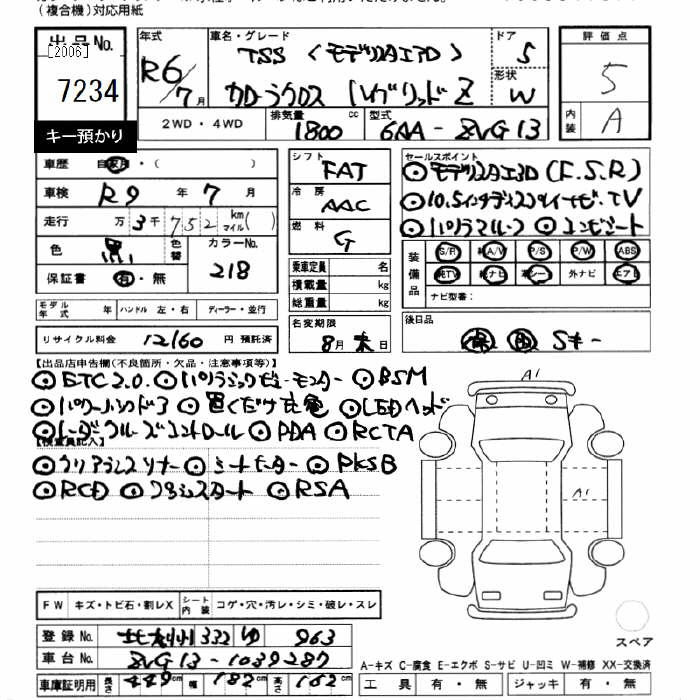 (複合機)対応用紙
出品No.
[2006]
7234
キー預かり
年式
R6/7月
車名・グレード
TSS (モデリスタエアロ)
カローラクロス ハイブリッド Z
ドア
5
形状
W
2WD・4WD
排気量
1800 cc
型式
6AA-ZVG13
評価点
5
内装
A
車歴 自家用・( )
車検 R9年 7月
走行 3万 752 km マイル( )
色 黒 色替
カラーNo. 218
保証書 有・無
シフト
FAT
冷房
AAC
燃料
G
乗車定員 名
積載量 kg
総重量 kg
セールスポイント
⊙モデリスタエアロ(F.S.R)
⊙10.5インチディスプレイナビ・TV
⊙パノラマルーフ ⊙コンビシート
装備品
S/R 純A/W P/S P/W ABS
純TV 純ナビ 革シート 外ナビ エアB
ナビ型番:
モデル年式 年 ハンドル 左・右 ディーラー・並行
リサイクル料金 12160 円 預託済
名変期限
8月末日
後日品
保 取 Sキー
【出品店申告欄(不良箇所・欠品・注意事項等)】
⊙ETC2.0. ⊙パノラミックビューモニター ⊙BSM
⊙パワーバックドア ⊙置くだけ充電 ⊙LEDヘッド
⊙レーダークルーズコントロール ⊙PDA ⊙RCTA
【検査員記入】
⊙クリアランスソナー ⊙シートヒーター ⊙PKSB
⊙RCD ⊙プッシュスタート ⊙RSA
A1
A1
スペア
FW キズ・トビ石・割レX シート内装 コゲ・穴・汚レ・シミ・破レ・スレ
登録No. 北九州 332 ゆ 963
車台No. ZVG13-1039287
車庫証明用 長さ 449cm 幅 182cm 高さ 162cm
A-キズ C-腐食 E-エクボ S-サビ U-凹ミ W-補修 XX-交換済
工具 有・無 ジャッキ 有・無